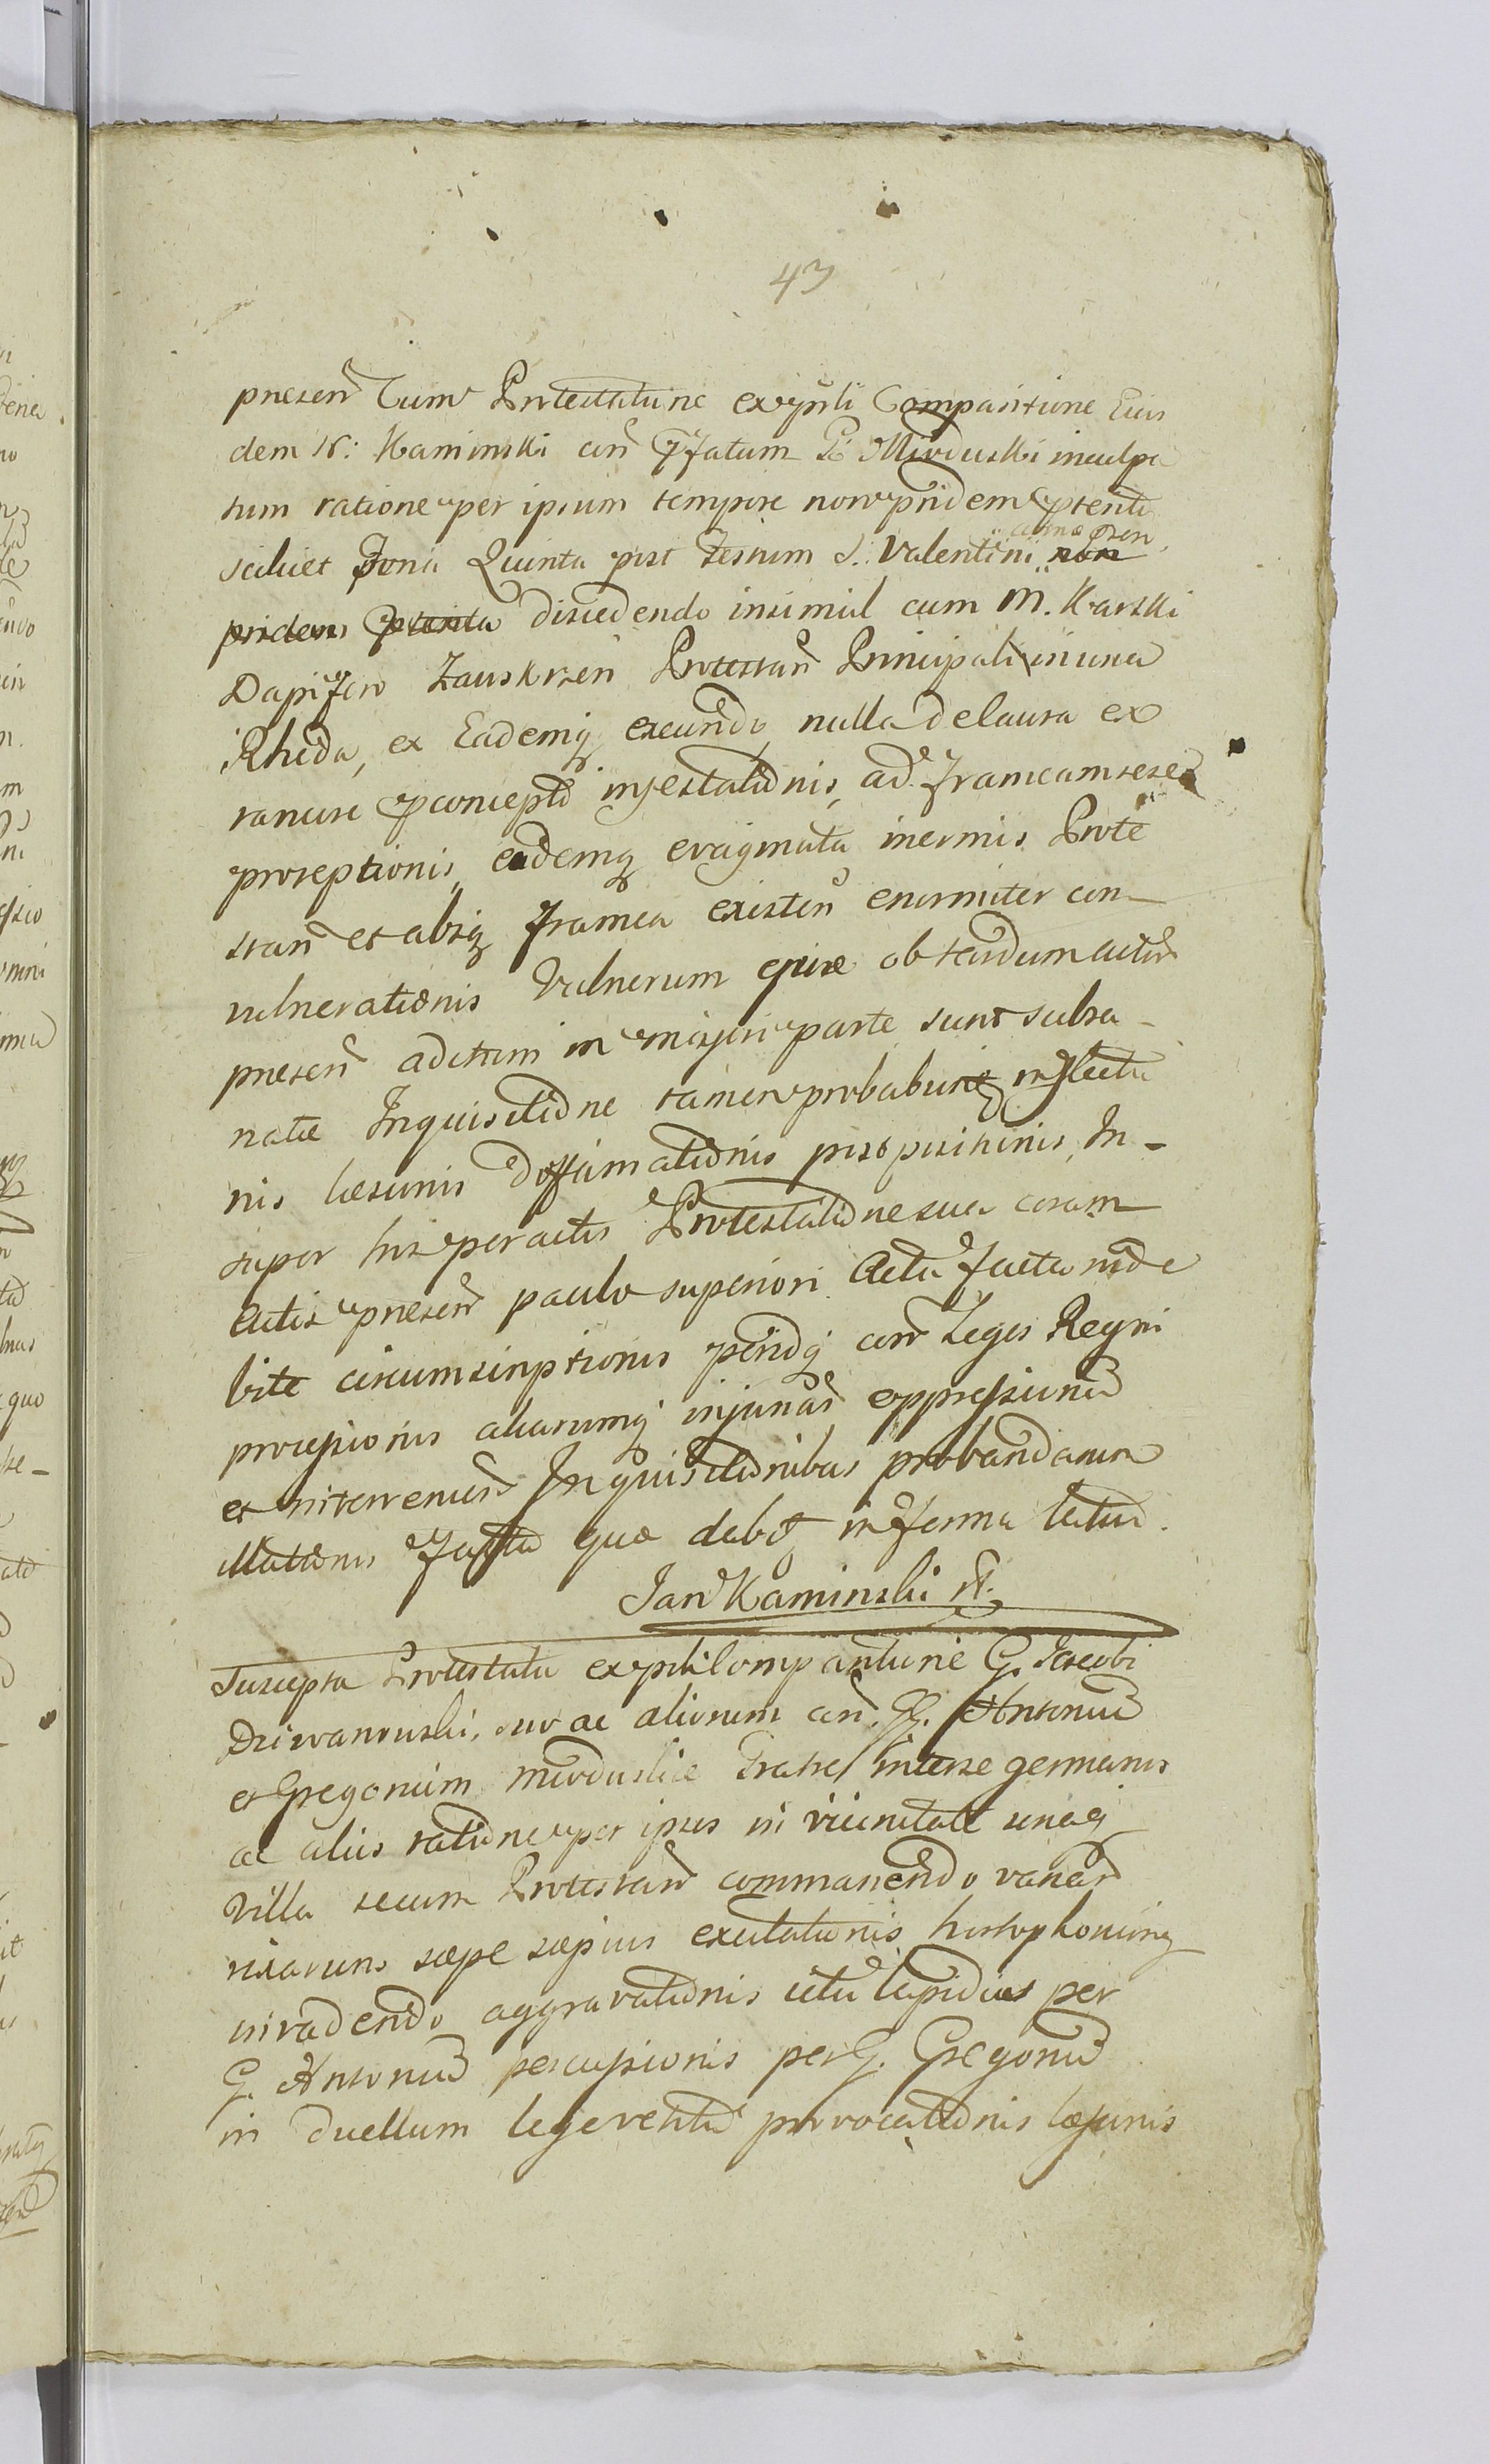 43
presen Cum Protestatione ex ypsili Compositione Eius
dem N: Kaminski con Pfatum G. Mioduski inculpa
tum ratione per ipsum tempore non pridem Pterito
scilicet Feria Quinta post Festum S. Valentini anno presen non
pridem Pterita discedendo insimul cum M. Karski
Dapifero Zauskrzen Protestan Principali in una
Rheda, ex Eademq exeundo nulla de causa ex
rancore Pconcepto infestationis, ad frameam sese
proreptionis, eademq evaginata inermis Prote
stan et absq framea existen enormiter con
vulnerationis Vulnerum quæ ob tardum actor
presen aditum in majori parte sunt subsa-
natæ Inquisitione tamen probabunt
nis læsionis Deffamationis post positionis, In-
super his peractis Protestatione sua coram
Actis presen paulo superiori Actu facta inde
bite circumscriptionis pendq con Leges Regni
processionis aliarumq injuriar oppressionum
et Inquisitionibus probandarum
illationis facta quæ debet in forma latius.
Jan Kaminski
Suscepta Protestatio ex pstli comparitione G. Jacobi
Dziwanowski, suo ac aliorum con. GG. Antonium
et Gregorium Mioduskie Fratres interse germanos
ac alios ratione per ipsos in vicinitate unaq
Villa secum Protestan commanendo variar
rixarum sæpe sæpius excitationis
invadendo aggravationis ictu lapidius per
G. Antonium percussionis per G. Gregorium
in duellum lege vetitum provocationis læsionis